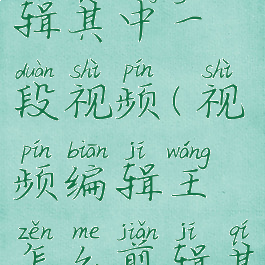 辑其中一
duàn shì pín shì
段视频(视
pín biān jí wáng
频编辑王
zěn me jiǎn jí qí
怎么剪辑其